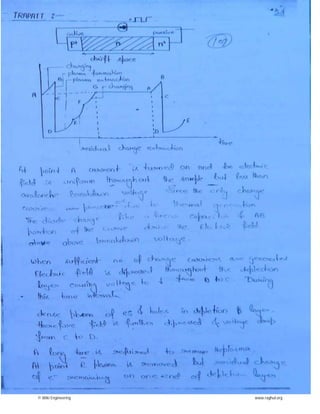 TRAPATT :-
active
passive
P+
n
n+
drift space
charging
plasma formation
plasma extraction
G - charging
A
B
C
D
E
F
G
A
B
C
D
E
time
residual charge extraction
At point A current is turned on and the electric
field is uniform throughout the sample but less than
avalanche breakdown voltage. Since the only charge
carriers are present due to thermal generation
The diode charge like a linear capacitor & AB
portion of the curve drive the Electric field
above above breakdown voltage.
When sufficient no of charge carriers are generated
Electric field is depressed throughout the depletion
layer causing voltage to ↓ from B to C. During
this time interval
dense plasma of e⁻s & holes in depletion layer.
therefore field is further depressed & voltage drop
from C to D.
A long time is required to remove the plasma
At point E plasma is removed but residual charge
of e⁻ remaining on one end of depletion layer
© Bilki Engineering
www.raghul.org